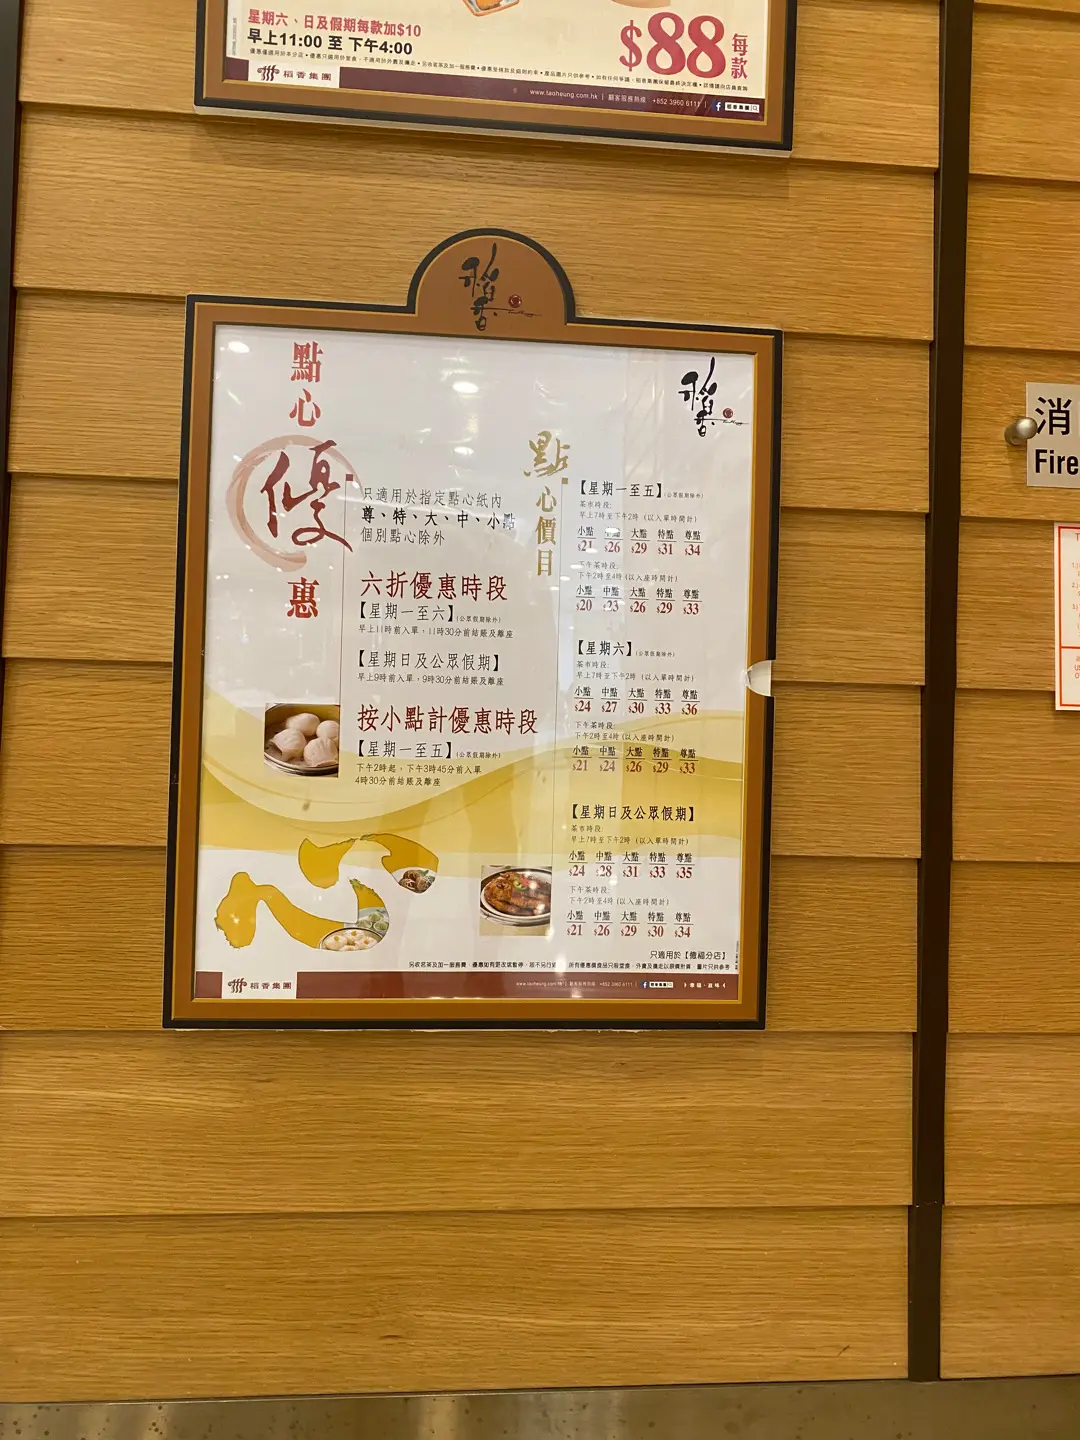 星期六、日及假期每款加$10
早上11:00 至 下午4:00
$88 每款
稻香集團
www.taoheung.com.hk | 顧客服務熱線 +852 3960 6111 | 稻香集團
稻香
點心優惠
只適用於指定點心紙內
尊、特、大、中、小點
個別點心除外
六折優惠時段
【星期一至六】(公眾假期除外)
早上11時前入單，11時30分前結賬及離座
【星期日及公眾假期】
早上9時前入單，9時30分前結賬及離座
按小點計優惠時段
【星期一至五】(公眾假期除外)
下午2時起，下午3時45分前入單
4時30分前結賬及離座
稻香
點心價目
【星期一至五】(公眾假期除外)
茶市時段:
早上7時至下午2時 (以入單時間計)
小點 中點 大點 特點 尊點
$21 $26 $29 $31 $34
下午茶時段:
下午2時至4時 (以入座時間計)
小點 中點 大點 特點 尊點
$20 $23 $26 $29 $33
【星期六】(公眾假期除外)
茶市時段:
早上7時至下午2時 (以入單時間計)
小點 中點 大點 特點 尊點
$24 $27 $30 $33 $36
下午茶時段:
下午2時至4時 (以入座時間計)
小點 中點 大點 特點 尊點
$21 $24 $26 $29 $33
【星期日及公眾假期】
茶市時段:
早上7時至下午2時 (以入單時間計)
小點 中點 大點 特點 尊點
$24 $28 $31 $33 $35
下午茶時段:
下午2時至4時 (以入座時間計)
小點 中點 大點 特點 尊點
$21 $26 $29 $30 $34
稻香集團
www.taoheung.com.hk | 顧客服務熱線 +852 3960 6111 | 稻香集團
消
Fire